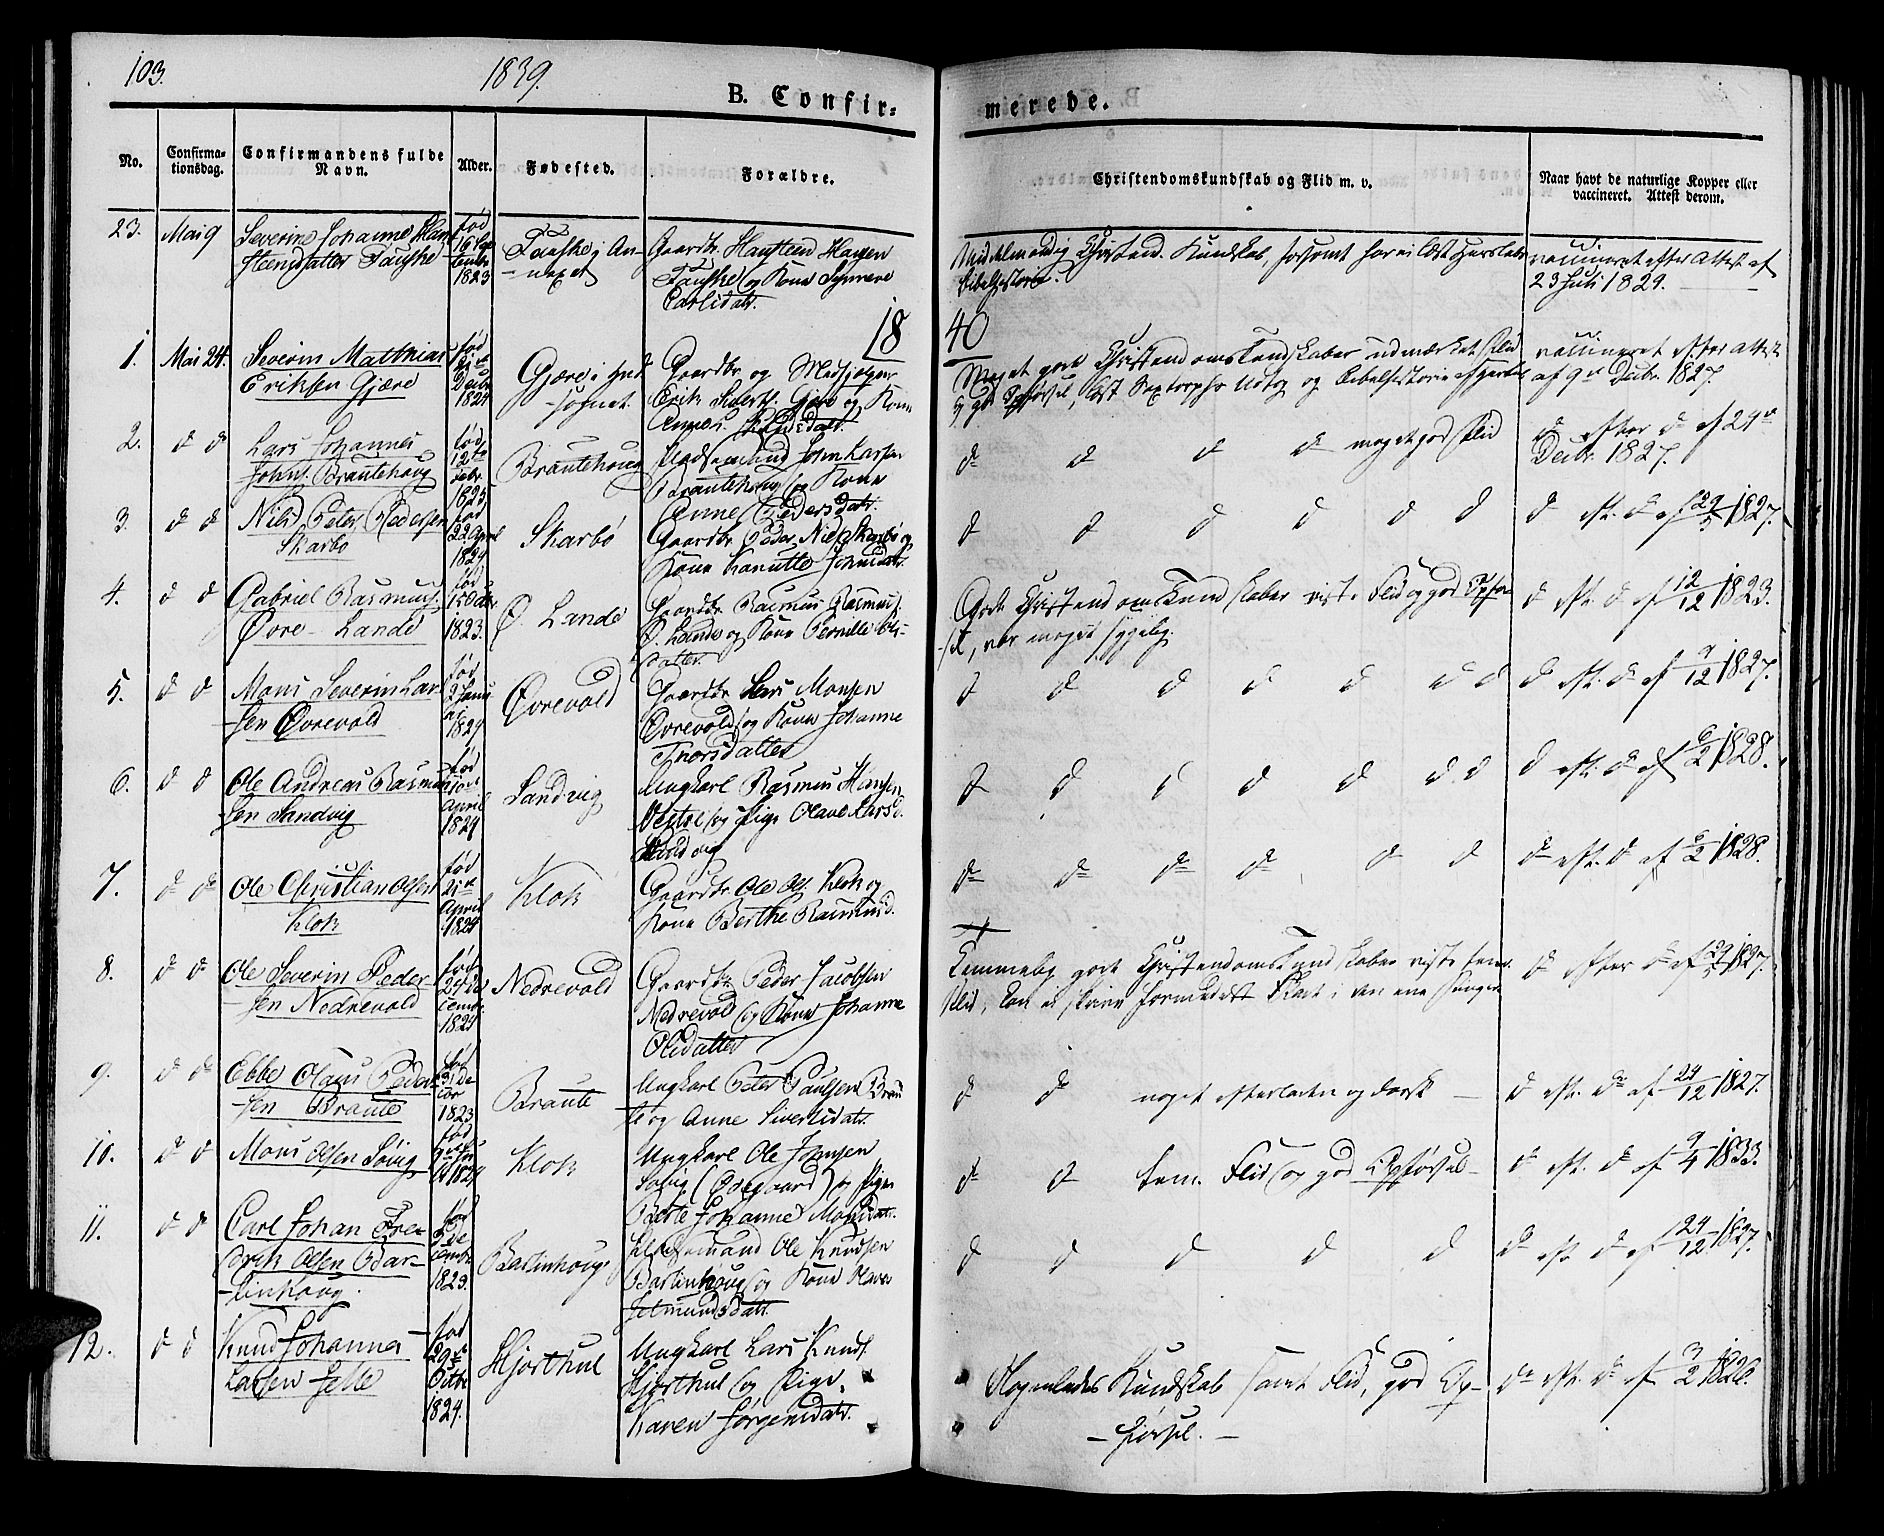 103.
1839.
B. Confir-
merede.
No.
Confirma-
tionsdag.
Confirmandens fulde
Navn.
Alder.
Fødested.
Forældre.
Christendomskundskab og Flid m. v.
Naar havt de naturlige Kopper eller
vaccineret. Attest derom.
23.
Mai 9
Severine Johanne Han-
steensdatter Fauske
fød
16 Sep
tembr
1823
Fauske, An-
nexet
Gaardbr. Hansteen Hansen
Fauske og Kone
Carlsdatr.
Middelmaadig Christend. Kundskab, forsømt
Bibelhistorie.
vaccineret efter Attest af
23 Juli 1829.
18
40
1.
Mai 24.
Severin Matthias
Eriksen Gjære
fød
Decbr
1824
Gjære i Hvd
sognet
Gaardbr og Medhjelper
Erik Gjære og Kone
Meget gode Christendomskundskaber udmærket Flid
og god Opførsel, læst og Bibelhistorie
vaccineret efter Attest
af 9de Decbr. 1827.
2.
d d
Lars Johannes
Johns. Brautehoug
fød
12te
Febr
1825
Brautehoug
Pladsemand John Larsen
Brautehoug og Kone
Anne Pedersdatr.
d d d d meget god Flid
d efter d af 24de
Decbr. 1827.
3.
d d
Nils Peter Pedersen
Skarbø
fød
22 April
1824
Skarbø
Gaardbr Peder Niels. Skarbø og
Kone Kanutte Johnsdatr.
d d d d d d
d eft. d af 29/5 1827.
4.
d d
Gabriel Rasmus.
Øvre-Lande
fød
15 Octbr
1823.
Ø. Lande
Gaardbr Rasmus Rasmus.
Ø. Lande og Kone Pernille
datter.
Gode Christendomskundskaber viste Flid og god Opfør-
sel, var meget sygelig.
d eft. d af 12/12 1823.
5.
d d
Mons Severin Lar-
sen Øvrevold
fød
2 Janu
ar
1824
Øvrevold
Gaardbr Lars Monsen
Øvrevold og Kone Johanne
Thorsdatter
d d d d d d d
d eft. d af 7/12 1827.
6.
d d
Ole Andreas Rasmus-
sen Sandvig
fød
10de
April
1824
Sandvig
Ungkarl Rasmus Hansen
Vestre og Pige Olave Larsd.
Sandvig
d d d d d d d
d eft. d af 6/2 1828.
7.
d d
Ole Christian Olsen
Klok
fød
21de
April
1824
Klok
Gaardbr Ole Ols. Klok og
Kone Berthe Rasmusd.
d d d d d d
d eft. d af 6/2 1828.
8.
d d
Ole Severin Peder-
sen Nedrevold
fød
24 De
cembr.
1824
Nedrevold
Gaardbr Peder Jacobsen
Nedrevold og Kone Johanne
Olsdatter
Temmelig gode Christendomskundskaber viste tem.
Flid, kan ei skrive formedelst Skade i den ene Finger
d efter d af 1827.
9.
d d
Ebbe Olaus Peder-
sen Braute
fød
31 De
cbr
1823
Braute
Ungkarl Peter Paulsen Brau
te og Anne Sivertsdatr.
d d noget efterladen og dorsk —
d eft. d af 24/12 1827.
10.
d d
Mons Olsen Søvig
fød
1824
Klok
Ungkarl Ole Johnsen
Søvig (Ødegaard) og Pige
Berte Johanne Monsdatr.
d d tem. Flid og god Opførsel-
d eft. d af 9/4 1833.
11.
d d
Carl Johan Fre-
drik Olsen Bar-
tinhoug.
fød
5 De
cembr
1823.
Bartinhoug
Pladsemand Ole Knudsen
Bartinhoug og Kone Olave
Jetmundsdatr.
d d d d d
d eft. d af 24/12 1827.
12.
d d
Knud Johannes
Larsen Jelle
fød
29de
Octbr
1824.
Hjorthul
Ungkarl Lars Knuds.
Hjorthul og Pige
Karen Jørgensdatr.
Nogenledes Kundskab samt Flid, god Op-
- førsel. -
d eft. d af 3/2 1826.